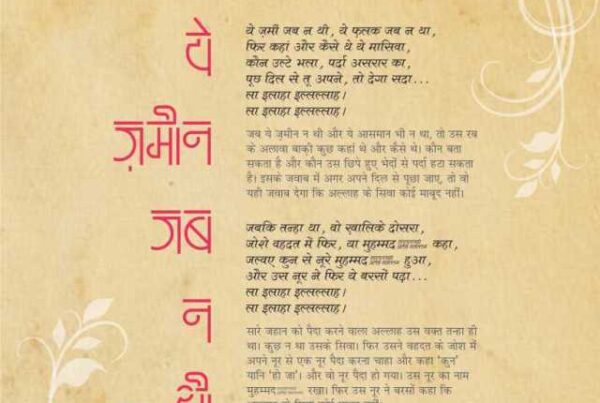 ये
ज़मीन
जब
न
थी
ये ज़मी जब न थी, ये फ़लक जब न था,
फिर कहां और कैसे थे ये मासिवा,
कौन उल्टे भला, पर्दा असरार का,
पूछ दिल से तु अपने, तो देगा सदा...
ला इलाहा इल्लल्लाह।
ला इलाहा इल्लल्लाह।
जब ये ज़मीन न थी और ये आसमान भी न था, तो उस रब
के अलावा बाक़ी कुछ कहां थे और कैसे थे। कौन बता
सकता है और कौन उस छिपे हुए भेदों से पर्दा हटा सकता
है। इसके जवाब में अगर अपने दिल से पूछा जाए, तो वो
यही जवाब देगा कि अल्लाह के सिवा कोई माबूद नहीं।
जबकि तन्हा था, वो ख़ालिके दोसरा,
जोशे वहदत में फिर, या मुहम्मद कहा,
जल्वए कुन से नूरे मुहम्मद हुआ,
और उस नूर ने फिर ये बरसों पढ़ा...
ला इलाहा इल्लल्लाह।
ला इलाहा इल्लल्लाह।
सारे जहान को पैदा करने वाला अल्लाह उस वक्त तन्हा ही
था। कुछ न था उसके सिवा। फिर उसने वहदत के जोश में
अपने नूर से एक नूर पैदा करना चाहा और कहा 'कुन'
यानि 'हो जा'। और वो नूर पैदा हो गया। उस नूर का नाम
मुहम्मद रखा। फिर उस नूर ने बरसों कहा कि